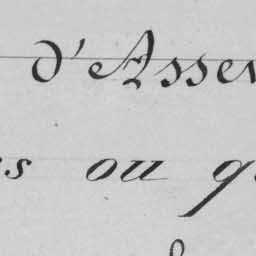 d'Asse
s ou q